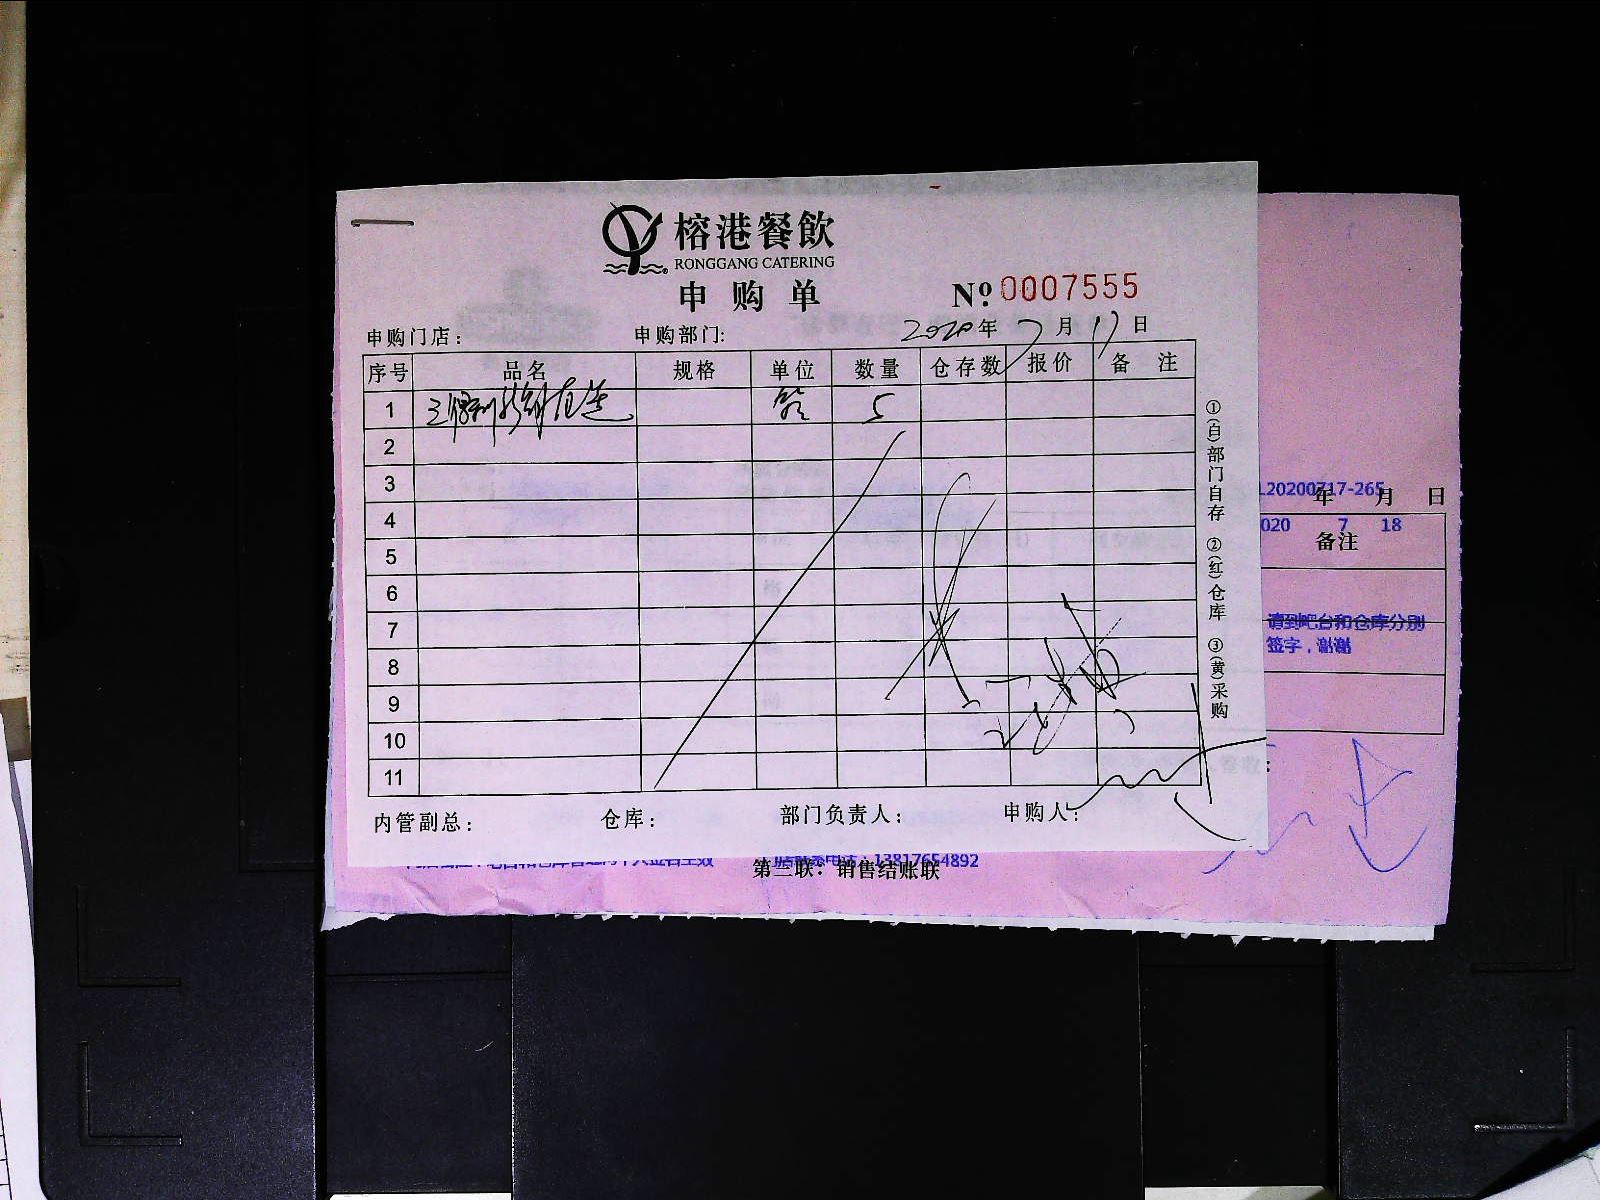 榕港餐飲
RONGGANG CATERING
申购单
Nº 0007555
申购门店： 申购部门: 2020年7月17日
序号 品名 规格 单位 数量 仓存数 报价 备注
1 5
2
3
4
5
6
7
8
9
10
11
①(白)部门自存 ②(红)仓库 ③(黄)采购
内管副总： 仓库： 部门负责人： 申购人：
20200717-265
年 月 日
020 7 18
备注
请到吧台和仓库分别
签字，谢谢
：13817654892
第三联：销售结账联